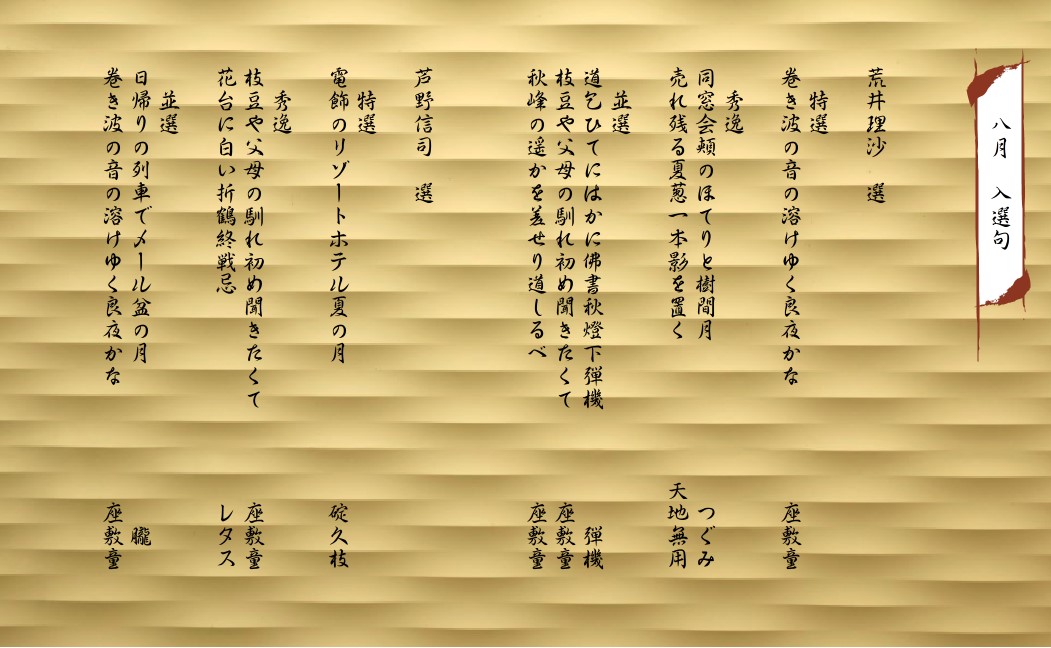 八月　入選句
荒井理沙　選
特選
巻き波の音の溶けゆく良夜かな　座敷童
秀逸
同窓会頬のほてりと樹間月　つぐみ
売れ残る夏葱一本影を置く　天地無用
並選
道乞ひてにはかに佛書秋燈下弾機　弾機
枝豆や父母の馴れ初め聞きたくて　座敷童
秋峰の遥かを差せり道しるべ　座敷童
芦野信司　選
特選
電飾のリゾートホテル夏の月　碇久枝
秀逸
枝豆や父母の馴れ初め聞きたくて　座敷童
花台に白い折鶴終戦忌　レタス
並選
日帰りの列車でメール盆の月　朧
巻き波の音の溶けゆく良夜かな　座敷童